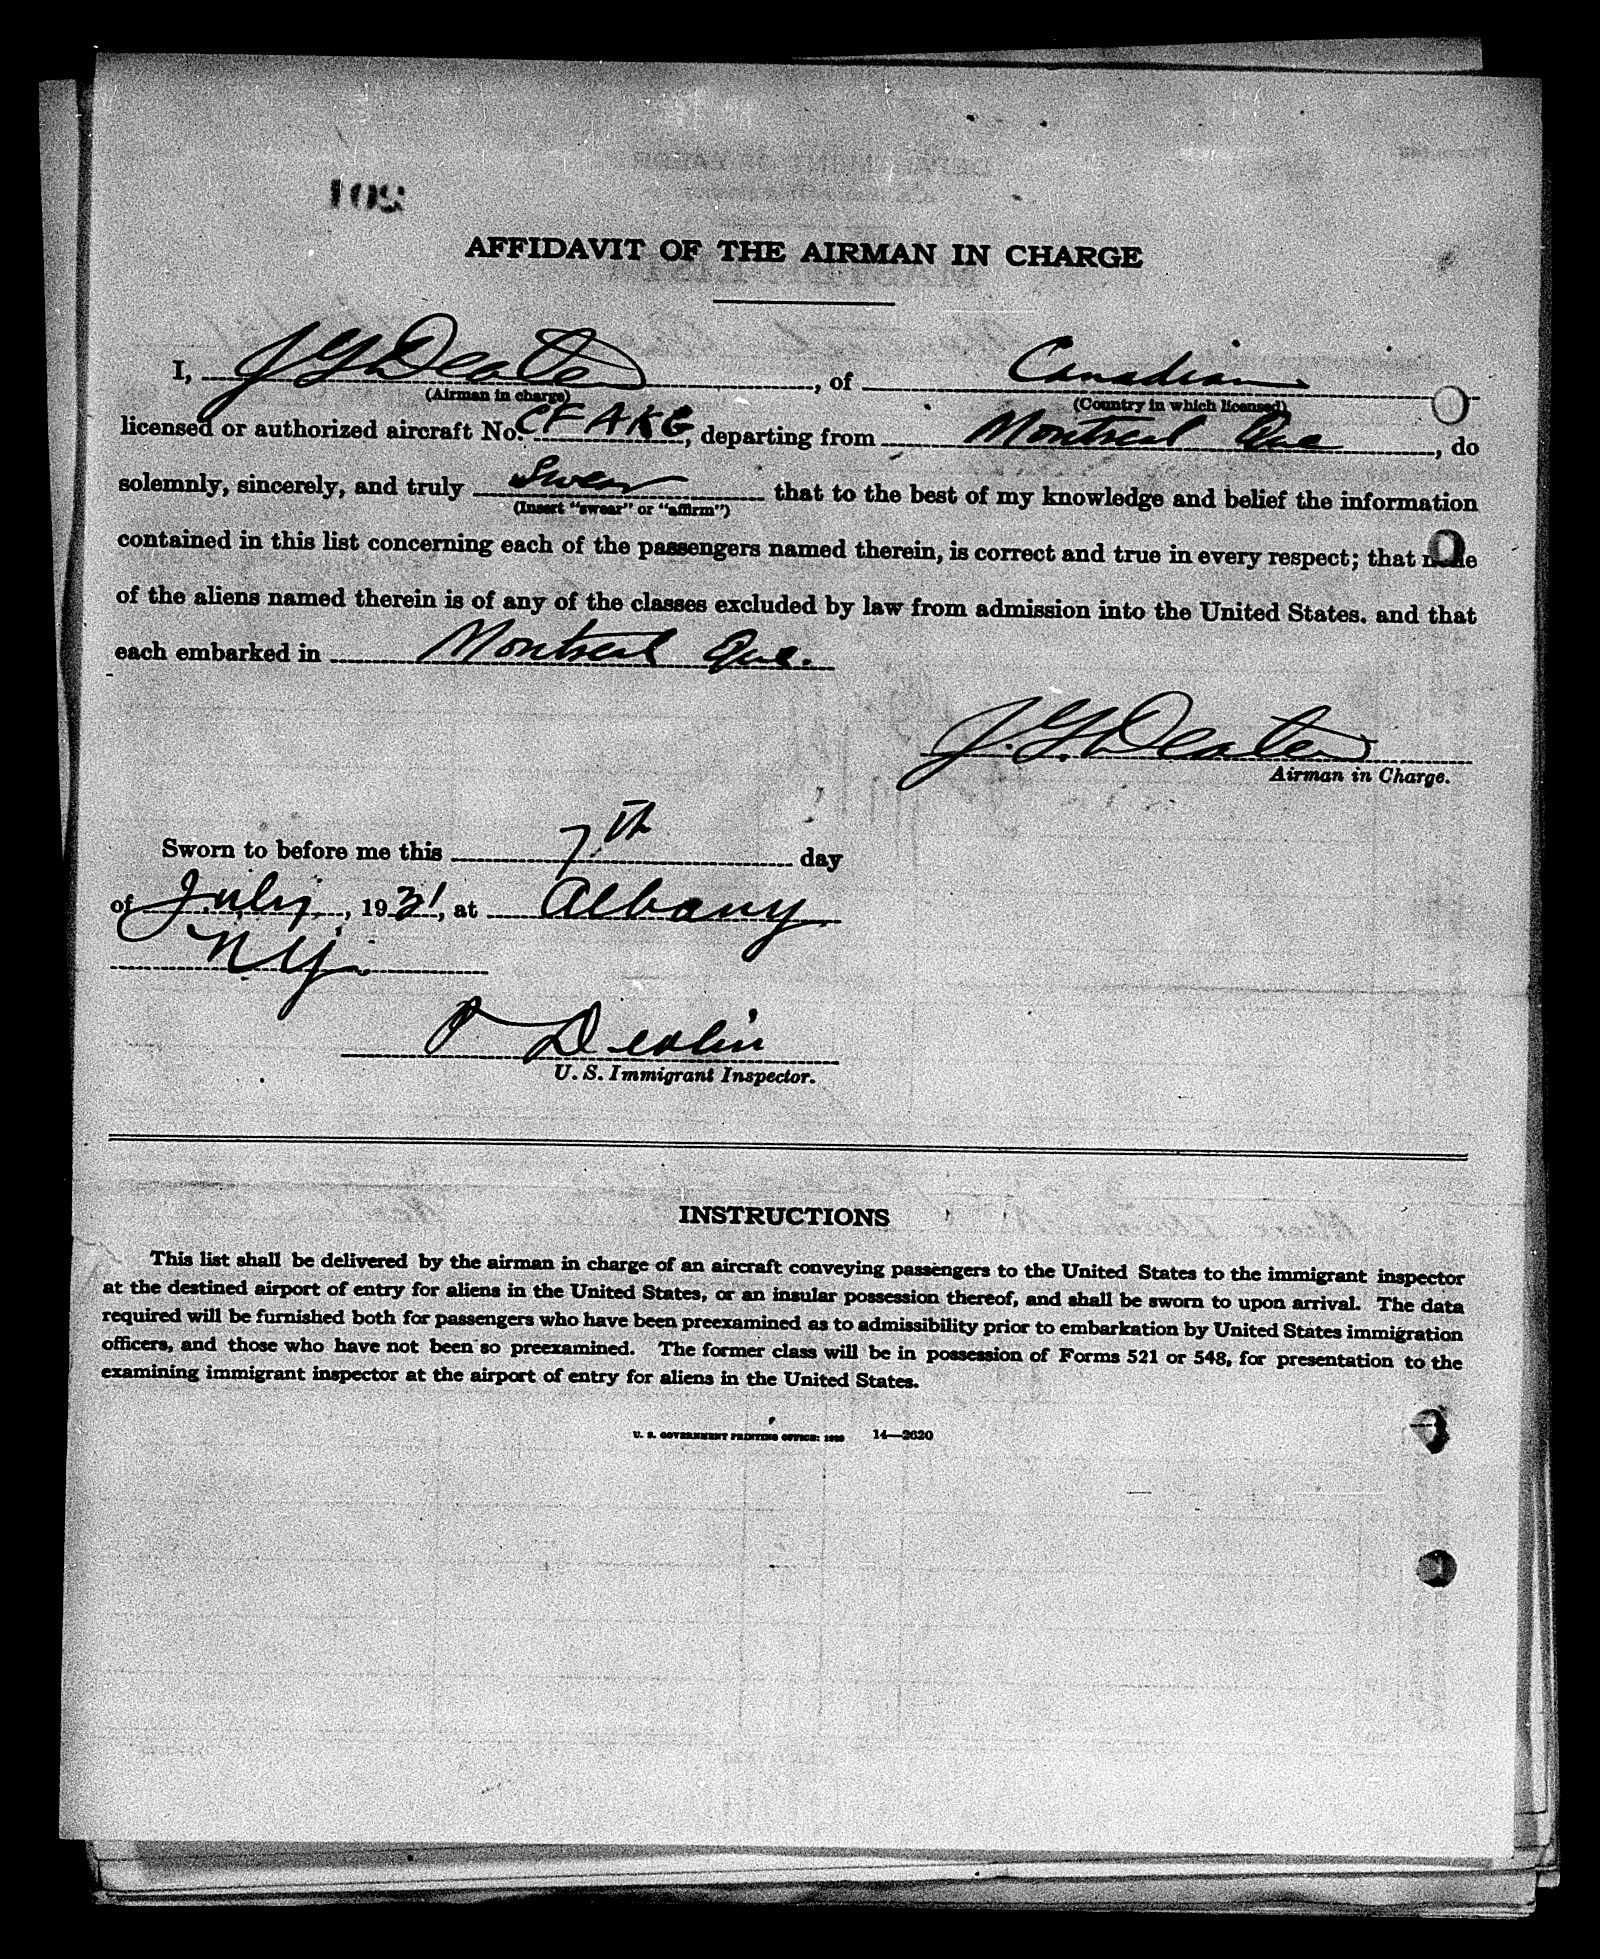 109
AFFIDAVIT OF THE AIRMAN IN CHARGE
I, J G Deater, of Canadian
(Airman in charge) (Country in which licensed)
licensed or authorized aircraft No. CFAKG, departing from Montreal Que, do
solemnly, sincerely, and truly Swear that to the best of my knowledge and belief the information
(Insert "swear" or "affirm")
contained in this list concerning each of the passengers named therein, is correct and true in every respect; that none
of the aliens named therein is of any of the classes excluded by law from admission into the United States. and that
each embarked in Montreal Que.
J. G. Deater
Airman in Charge.
Sworn to before me this 7th day
of July, 1931, at Albany
NY.
P Devlin
U. S. Immigrant Inspector.
INSTRUCTIONS
This list shall be delivered by the airman in charge of an aircraft conveying passengers to the United States to the immigrant inspector
at the destined airport of entry for aliens in the United States, or an insular possession thereof, and shall be sworn to upon arrival. The data
required will be furnished both for passengers who have been preexamined as to admissibility prior to embarkation by United States immigration
officers, and those who have not been so preexamined. The former class will be in possession of Forms 521 or 548, for presentation to the
examining immigrant inspector at the airport of entry for aliens in the United States.
U. S. GOVERNMENT PRINTING OFFICE: 14—2620